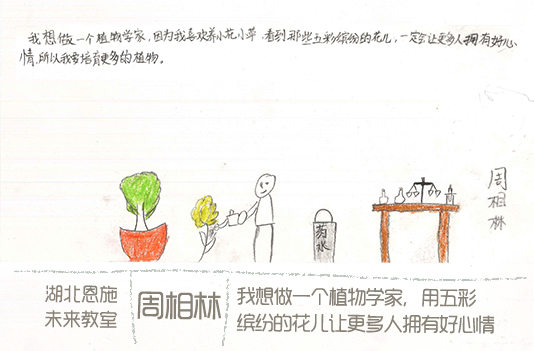 我想做一个植物学家，因为我喜欢养小花小草，看到那些五彩缤纷的花儿，一定会让更多人拥有好心
情，所以我要培育更多的植物。
周相林
药水
湖北恩施
未来教室
周相林
我想做一个植物学家，用五彩
缤纷的花儿让更多人拥有好心情